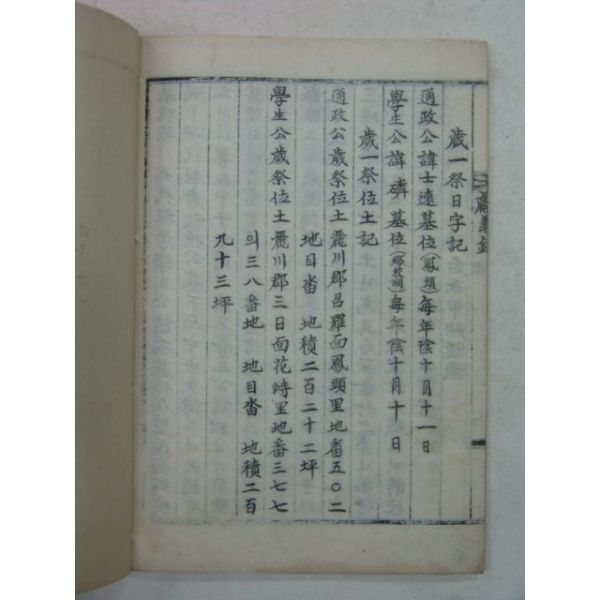 歲一祭日字記
通政公諱士遠墓位(鳳頭)每年陰十月十一日
學生公諱磷墓位每年陰十月十日
歲一祭位土記
通政公歲祭位土麗川郡召羅面鳳頭里地番五〇二
地目畓 地積二百二十二坪
學生公歲祭位土麗川郡三日面花峙里地番三七七
의三八番地 地目畓 地積二百
九十三坪